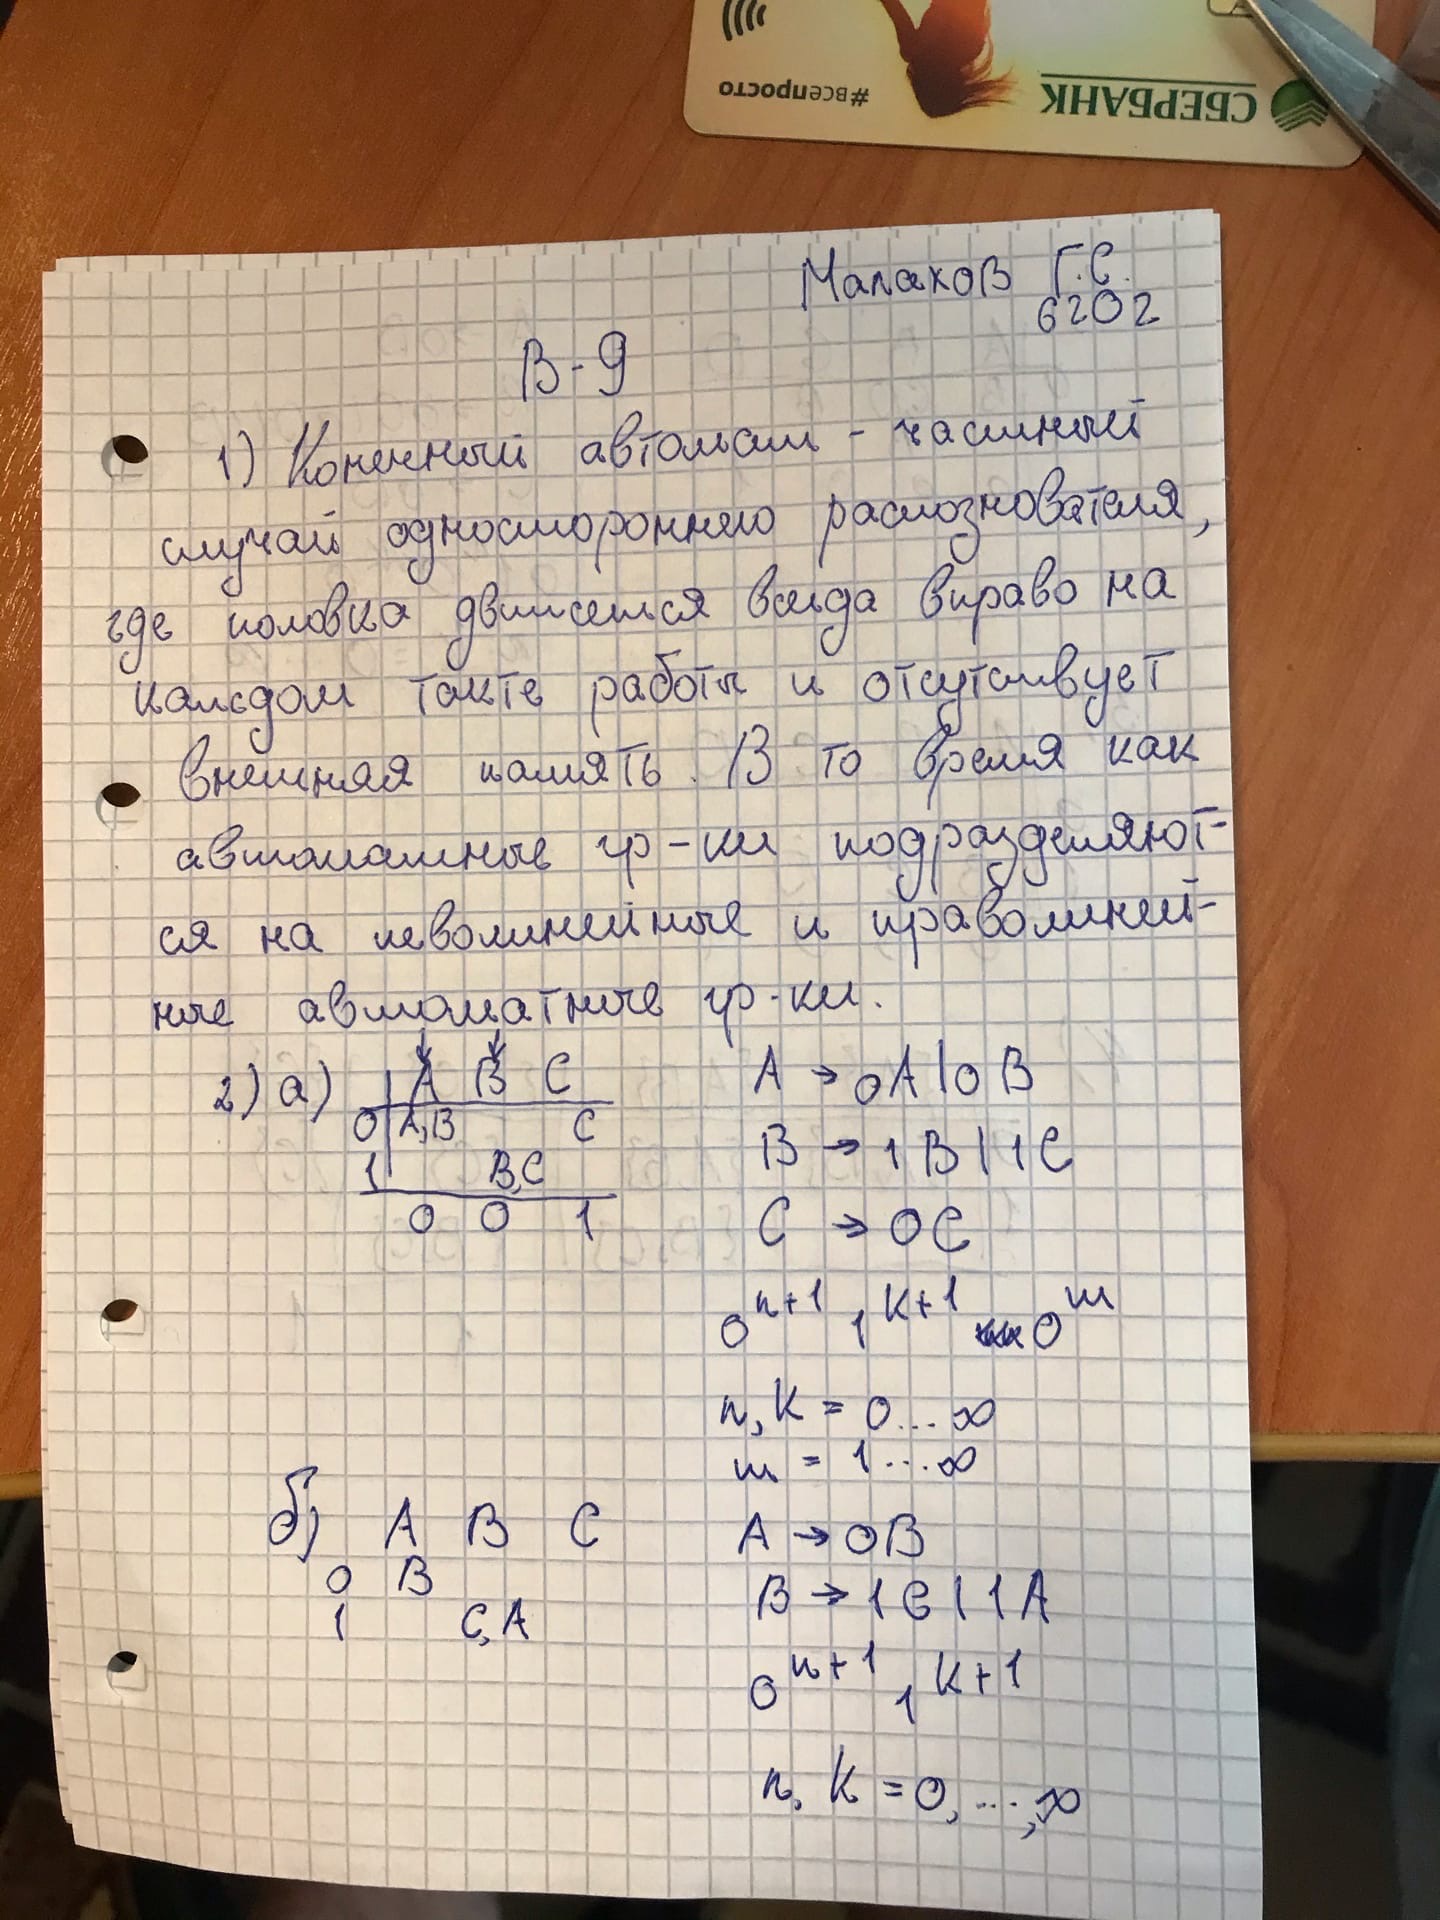 #всепросто
СБЕРБАНК
Малахов Г.С.
6202
В-9
1) Конечный автомат - частный
случай одностороннего распознователя,
где головка движется всегда вправо на
каждом такте работы и отсутствует
внешняя память. В то время как
автоматные гр-ки подразделяют-
ся на леволинейные и праволиней-
ные автоматные гр-ки.
2) а) A B C A → 0A|0B
0 A,B C B → 1B|1C
1 B,C
0 0 1 C → 0C
0^{n+1} 1^{k+1} 0^m
n,k = 0...∞
m = 1...∞
б) A B C A → 0B
0 B B → 1C|1A
1 C,A
0^{n+1} 1^{k+1}
n, k = 0, ..., ∞